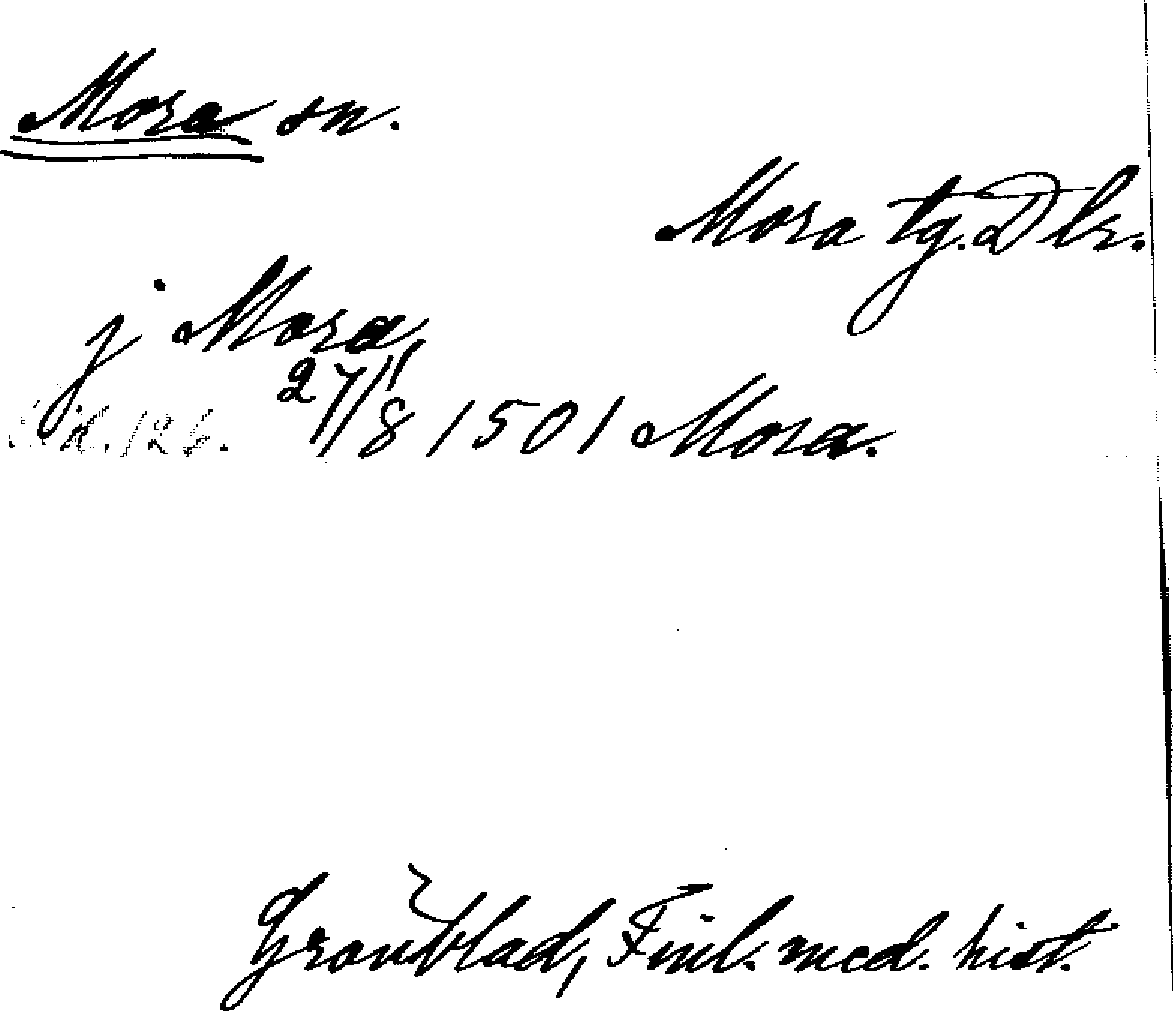 Mora sn.
Mora tg. Dlr.
j Mora
27/8 1501 Mora.
126.
Grönblad, Finl. med. hist.